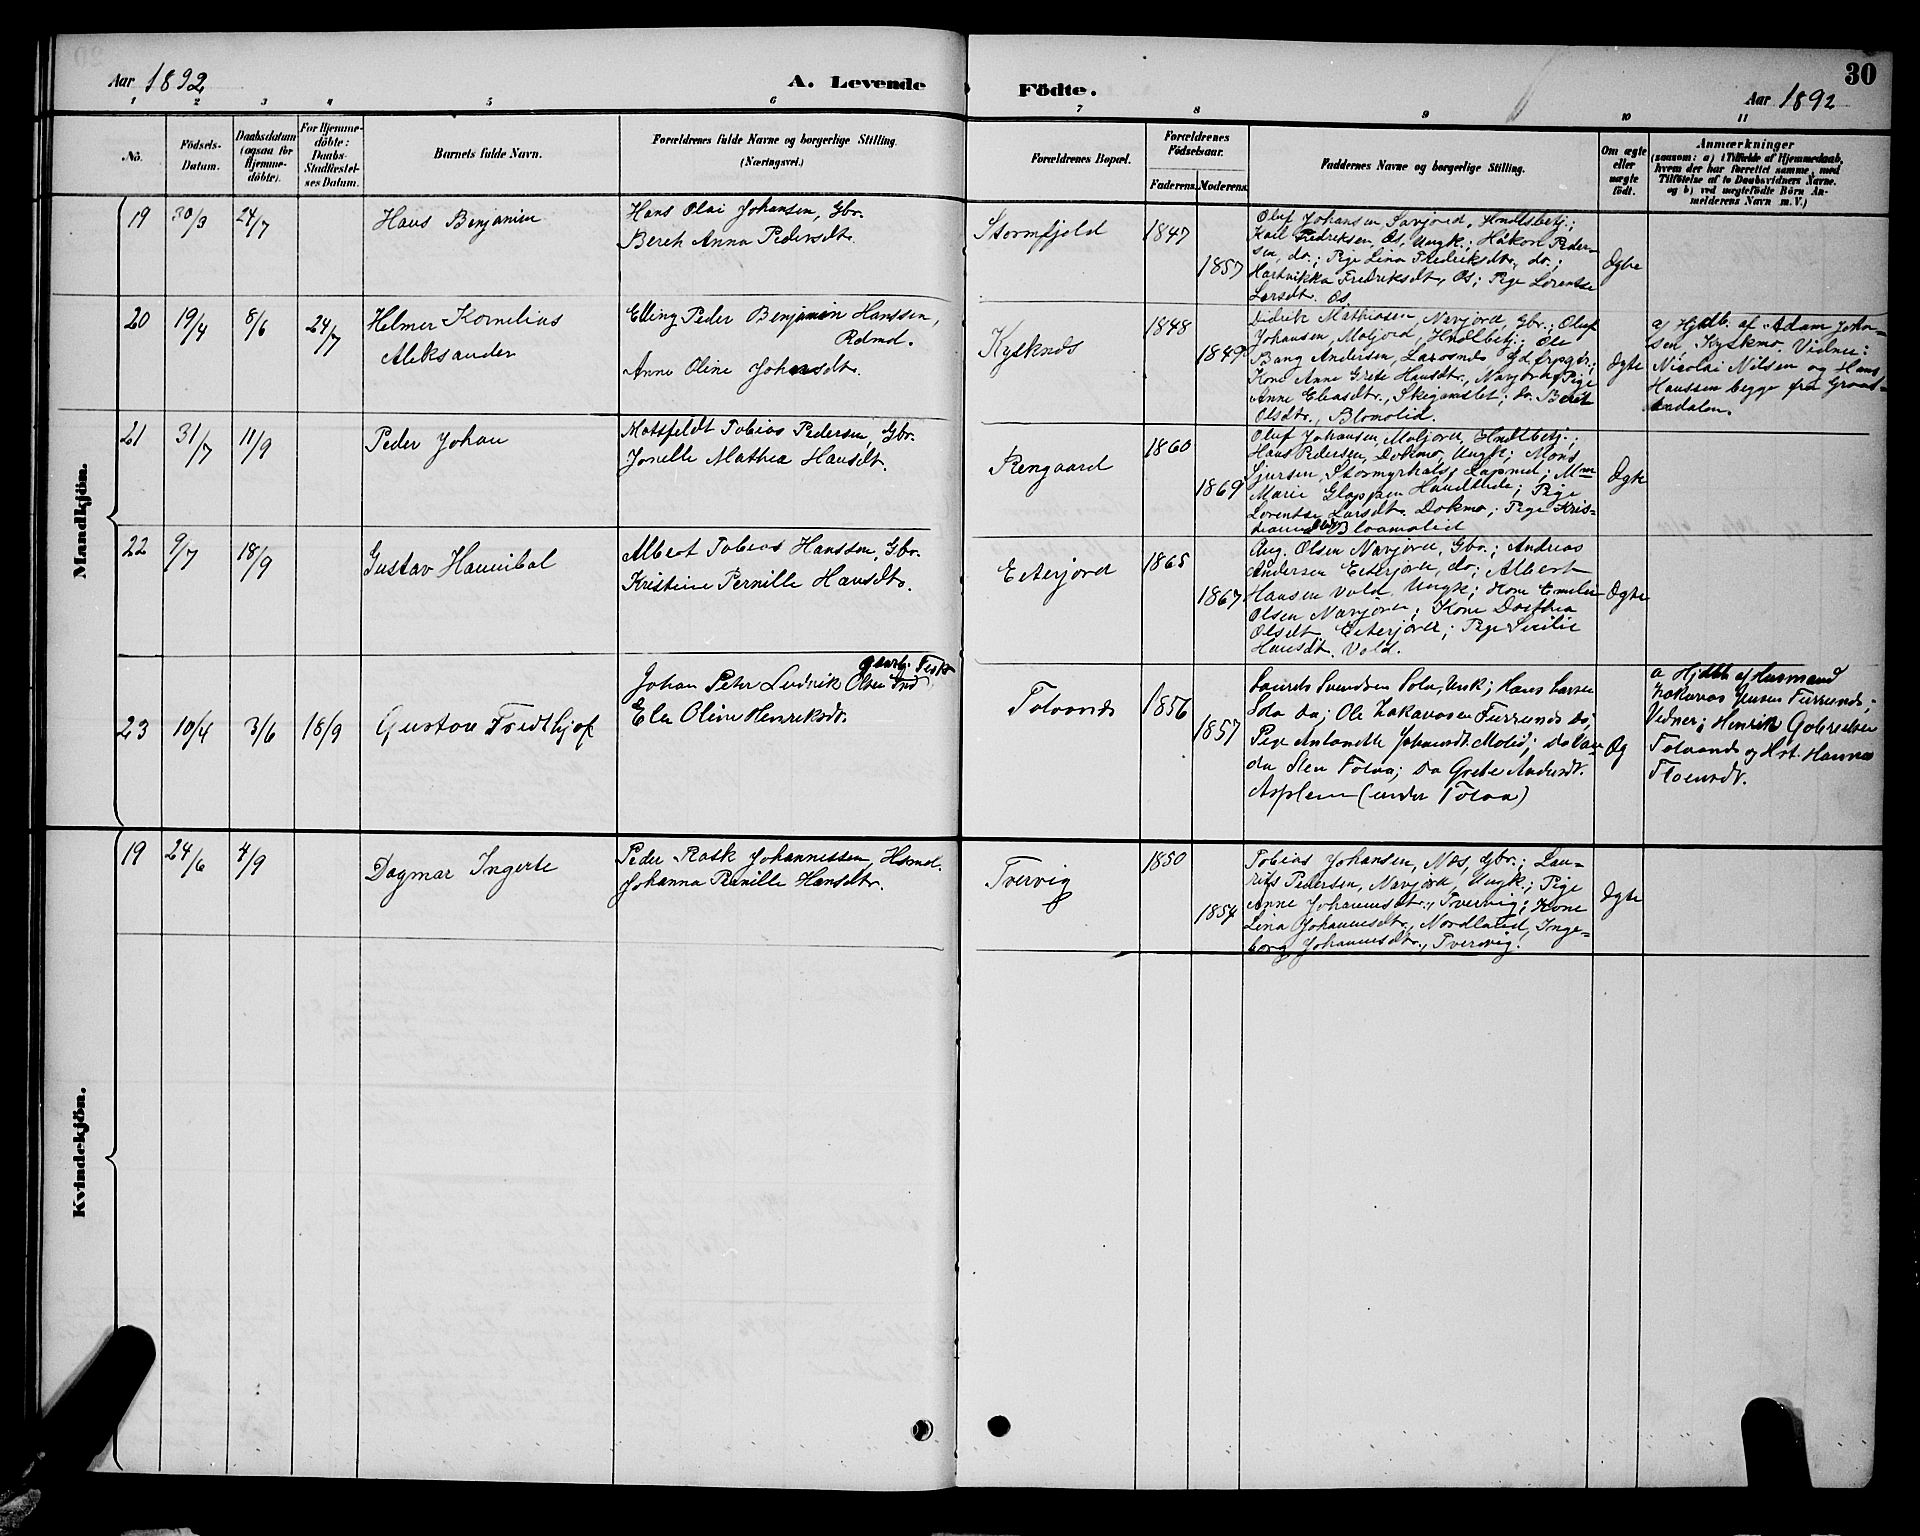 Aar 1892
A. Levende
Födte.
30
Aar 1892
1 2 3 4 5 6 7 8 9 10 11
No.
Födsels-
Datum.
Daabsdatum
(ogsaa for
Hjemme-
döbte).
For Hjemme-
döbte:
Daabs-
Stadfæstel-
ses Datum.
Barnets fulde Navn.
Forældrenes fulde Navne og borgerlige Stilling.
(Næringsvei.)
Forældrenes Bopæl.
Forældrenes
Födselsaar.
Faderens. Moderens.
Faddernes Navne og borgerlige Stilling.
Om ægte
eller
uægte
født.
Anmærkninger
(saasom: a) i Tilfælde af Hjemmedaab,
hvem der har forrettet samme, med
Tilføielse af to Daabsvidners Navne,
og b) ved uægtefødte Börn An-
melderens Navn m. V.)
Mandkjön.
19 30/3 24/7 Hans Benjamin
Hans Olai Johansen, Gbr.
Bereh Anna Pedersdtr.
Stormfjeld 1847 1857
Oluf Johansen, Savjord, Hndlsbetj.;
Karl Fredriksen, Os, Ungk.; Håkon Peder-
sen, do.; Pige Lina Fredriksdtr., do.;
Hartvikka Fredriksdt., Os; Pige Lorentse
Larsdt. Os.
Ægte
20 19/4 8/6 24/7 Helmer Kornelius
Aleksander
Elling Peder Benjamin Hanssen,
Rdmd.
Anne Oline Johansdtr.
Kysknes 1848 1849
Didrik Mathiassen, Navjord, Gbr.; Oluf
Johansen, Moljord, Hndlbetj.; Ole
Bang Andersen, Larosnes
Kone Anne Grete Hansdtr., Navjord; Pige
Anne Eliasdtr., ; do. Berit
Olsdtr., Blomolid.
Ægte
a) Hjdb. af Adam Joha-
sen Kyskmo. Vidner:
Nicolai Nilsen og Hans
Hanssen begge fra Graad-
aadalen.
21 31/7 11/9 Peder Johan
Motsfeldt Tobias Pedersen, Gbr.
Jonelle Mathea Hansdt.
Rengaard 1860 1869
Oluf Johansen, Moljord, Hndlbetj.;
Hans Pedersen, Dokmo, Ungk; Mons
Sjursen, Stormyrhals, Lapmd; Mm
Marie Glappen Handlende; Pige
Lorentse Larsdt. Dokmo; Pige Kris-
Bloamolid
Ægte
22 9/7 18/9 Gustav Hannibal
Albert Tobias Hanssen, Gbr.
Kristine Pernille Hansdtr.
Eiterjord 1865 1867
Aug. Olsen Navjord, Gbr.; Andreas
Andersen Eiterjord, do; Albert
Hansen Vold, Ungk; Kone Emelie
Olsen Navjord; Kone Dorthea
Olsdt. Eiterjord; Pige Sicilie
Hansdt. Vold.
Ægte
23 10/4 3/6 18/9 Gustav Fredthjof
Johan Peter Ludvik Olsen
Elen Oline Henriksdt.
Tolvands 1856 1857
Laurits Svendsen Sola, Unk; Hans Larsen
Sola do; Ole Zakariasen Furrunds do;
Pige Antonette Johansdt. ; Do
Tolva; Do Grete Andersdt.
Asplem (under Tolva)
Æg
a Hjdbt af Husmand
Zakarias Jensen Furrunds;
Vidner; Henrik Gabrielsen
Tolvands og Hst. Hanna
Kvindekjön.
19 24/6 4/9 Dagmar Ingerte
Peder Rask Johannessen, Hsmd.
Johanna Pernille Hansdtr.
Tvervig 1850 1854
Tobias Johansen, Næs, Gbr.; Lau-
rits Pedersen, Navjord, Ungk.; Pige
Anne Johannesdtr., Tvervig; Kone
Lina Johannesdtr., Nordland, Inge-
borg Johannesdtr., Tvervig.
Ægte